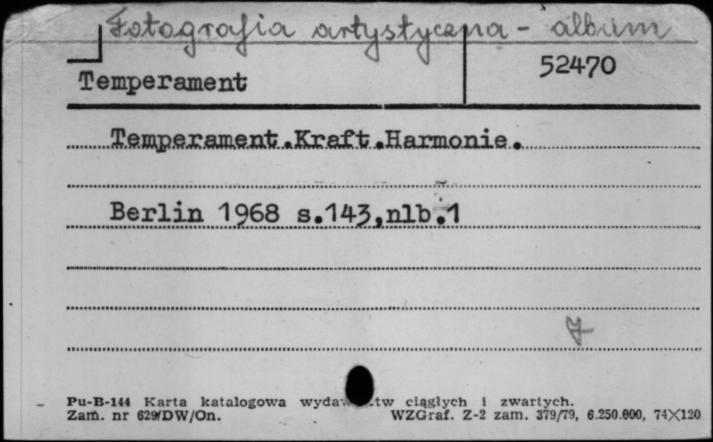 Fotografia artystyczna - album
Temperament 52470
Temperament.Kraft.Harmonie.
Berlin 1968 s.143,nlb.1
7
Pu-B-144 Karta katalogowa ciągłych i zwartych.
Zam. nr 629/DW/On. WZGraf. Z-2 zam. 379/79, 6.250.000, 74X120